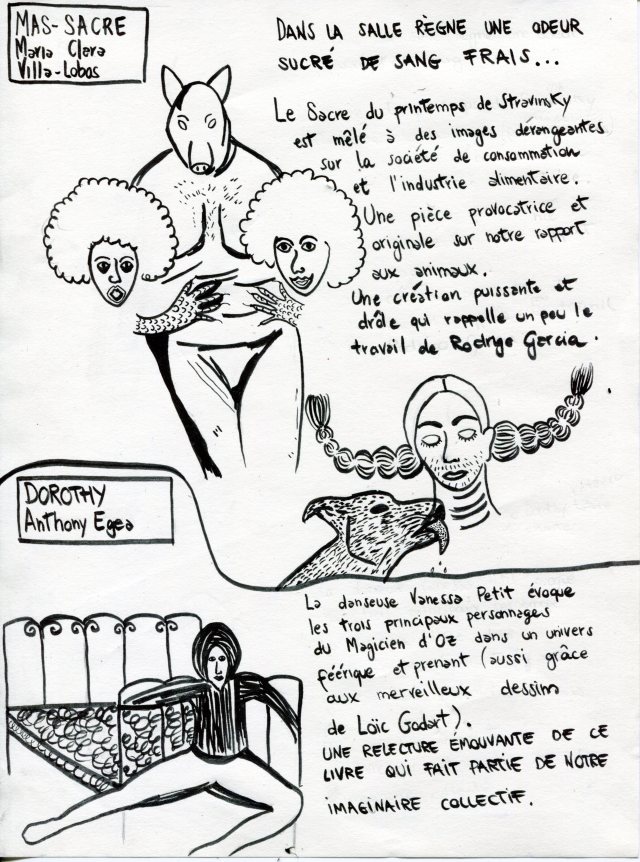 MAS-SACRE
Maria Clara
Villa-Lobos
DANS LA SALLE RÈGNE UNE ODEUR
SUCRÉ DE SANG FRAIS...
Le Sacre du printemps de Stravinsky
est mêlé à des images dérangeantes
sur la société de consommation
et l'industrie alimentaire.
Une pièce provocatrice et
originale sur notre rapport
aux animaux.
Une création puissante et
drôle qui rappelle un peu le
travail de Rodrigo Garcia.
DOROTHY
Anthony Egea
La danseuse Vanessa Petit évoque
les trois principaux personnages
du Magicien d'Oz dans un univers
féérique et prenant (aussi grâce
aux merveilleux dessins
de Loïc Godart).
UNE RELECTURE ÉMOUVANTE DE CE
LIVRE QUI FAIT PARTIE DE NOTRE
IMAGINAIRE COLLECTIF.